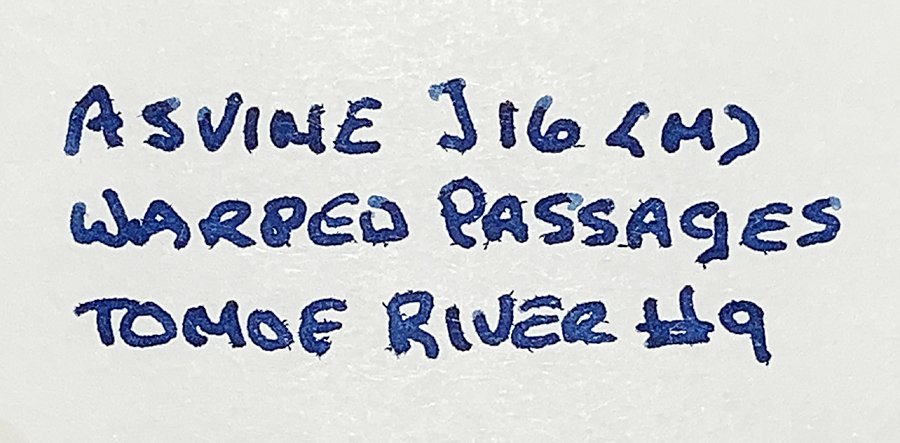 ASVINE J16 (M)
WARPED PASSAGES
TOMOE RIVER #9